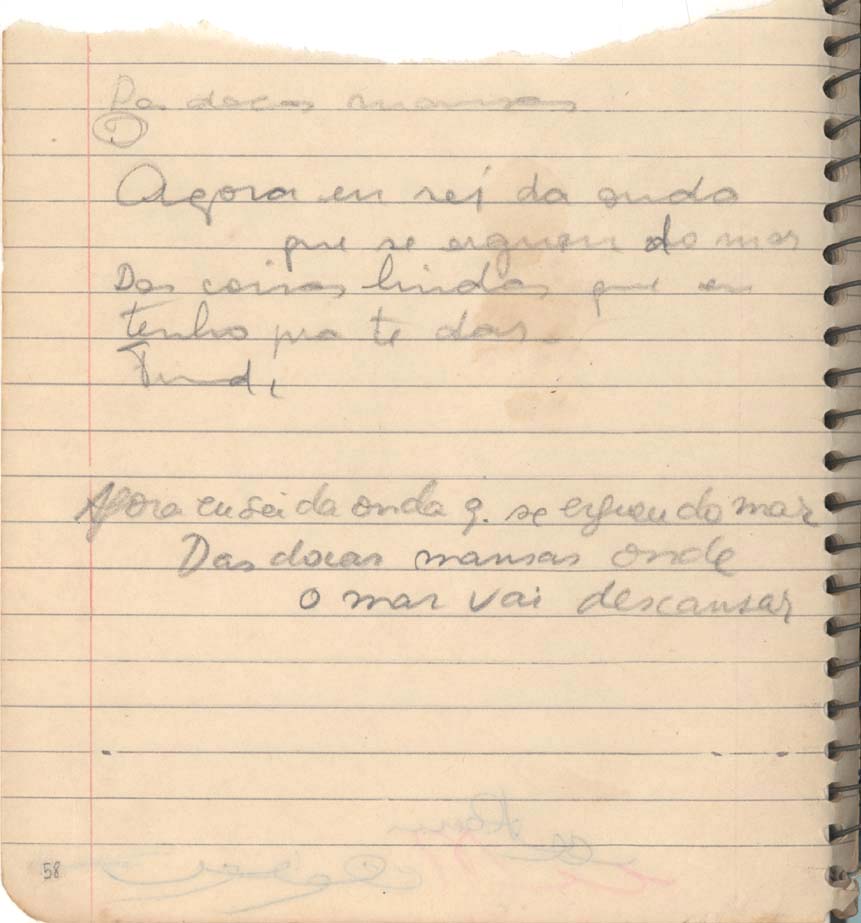 Das docas mansas
D
Agora eu sei da onda
que se ergueu do mar
Das coisas lindas que eu
tenho pra te dar
Agora eu sei da onda q. se ergueu do mar
Das docas mansas onde
o mar vai descansar
58